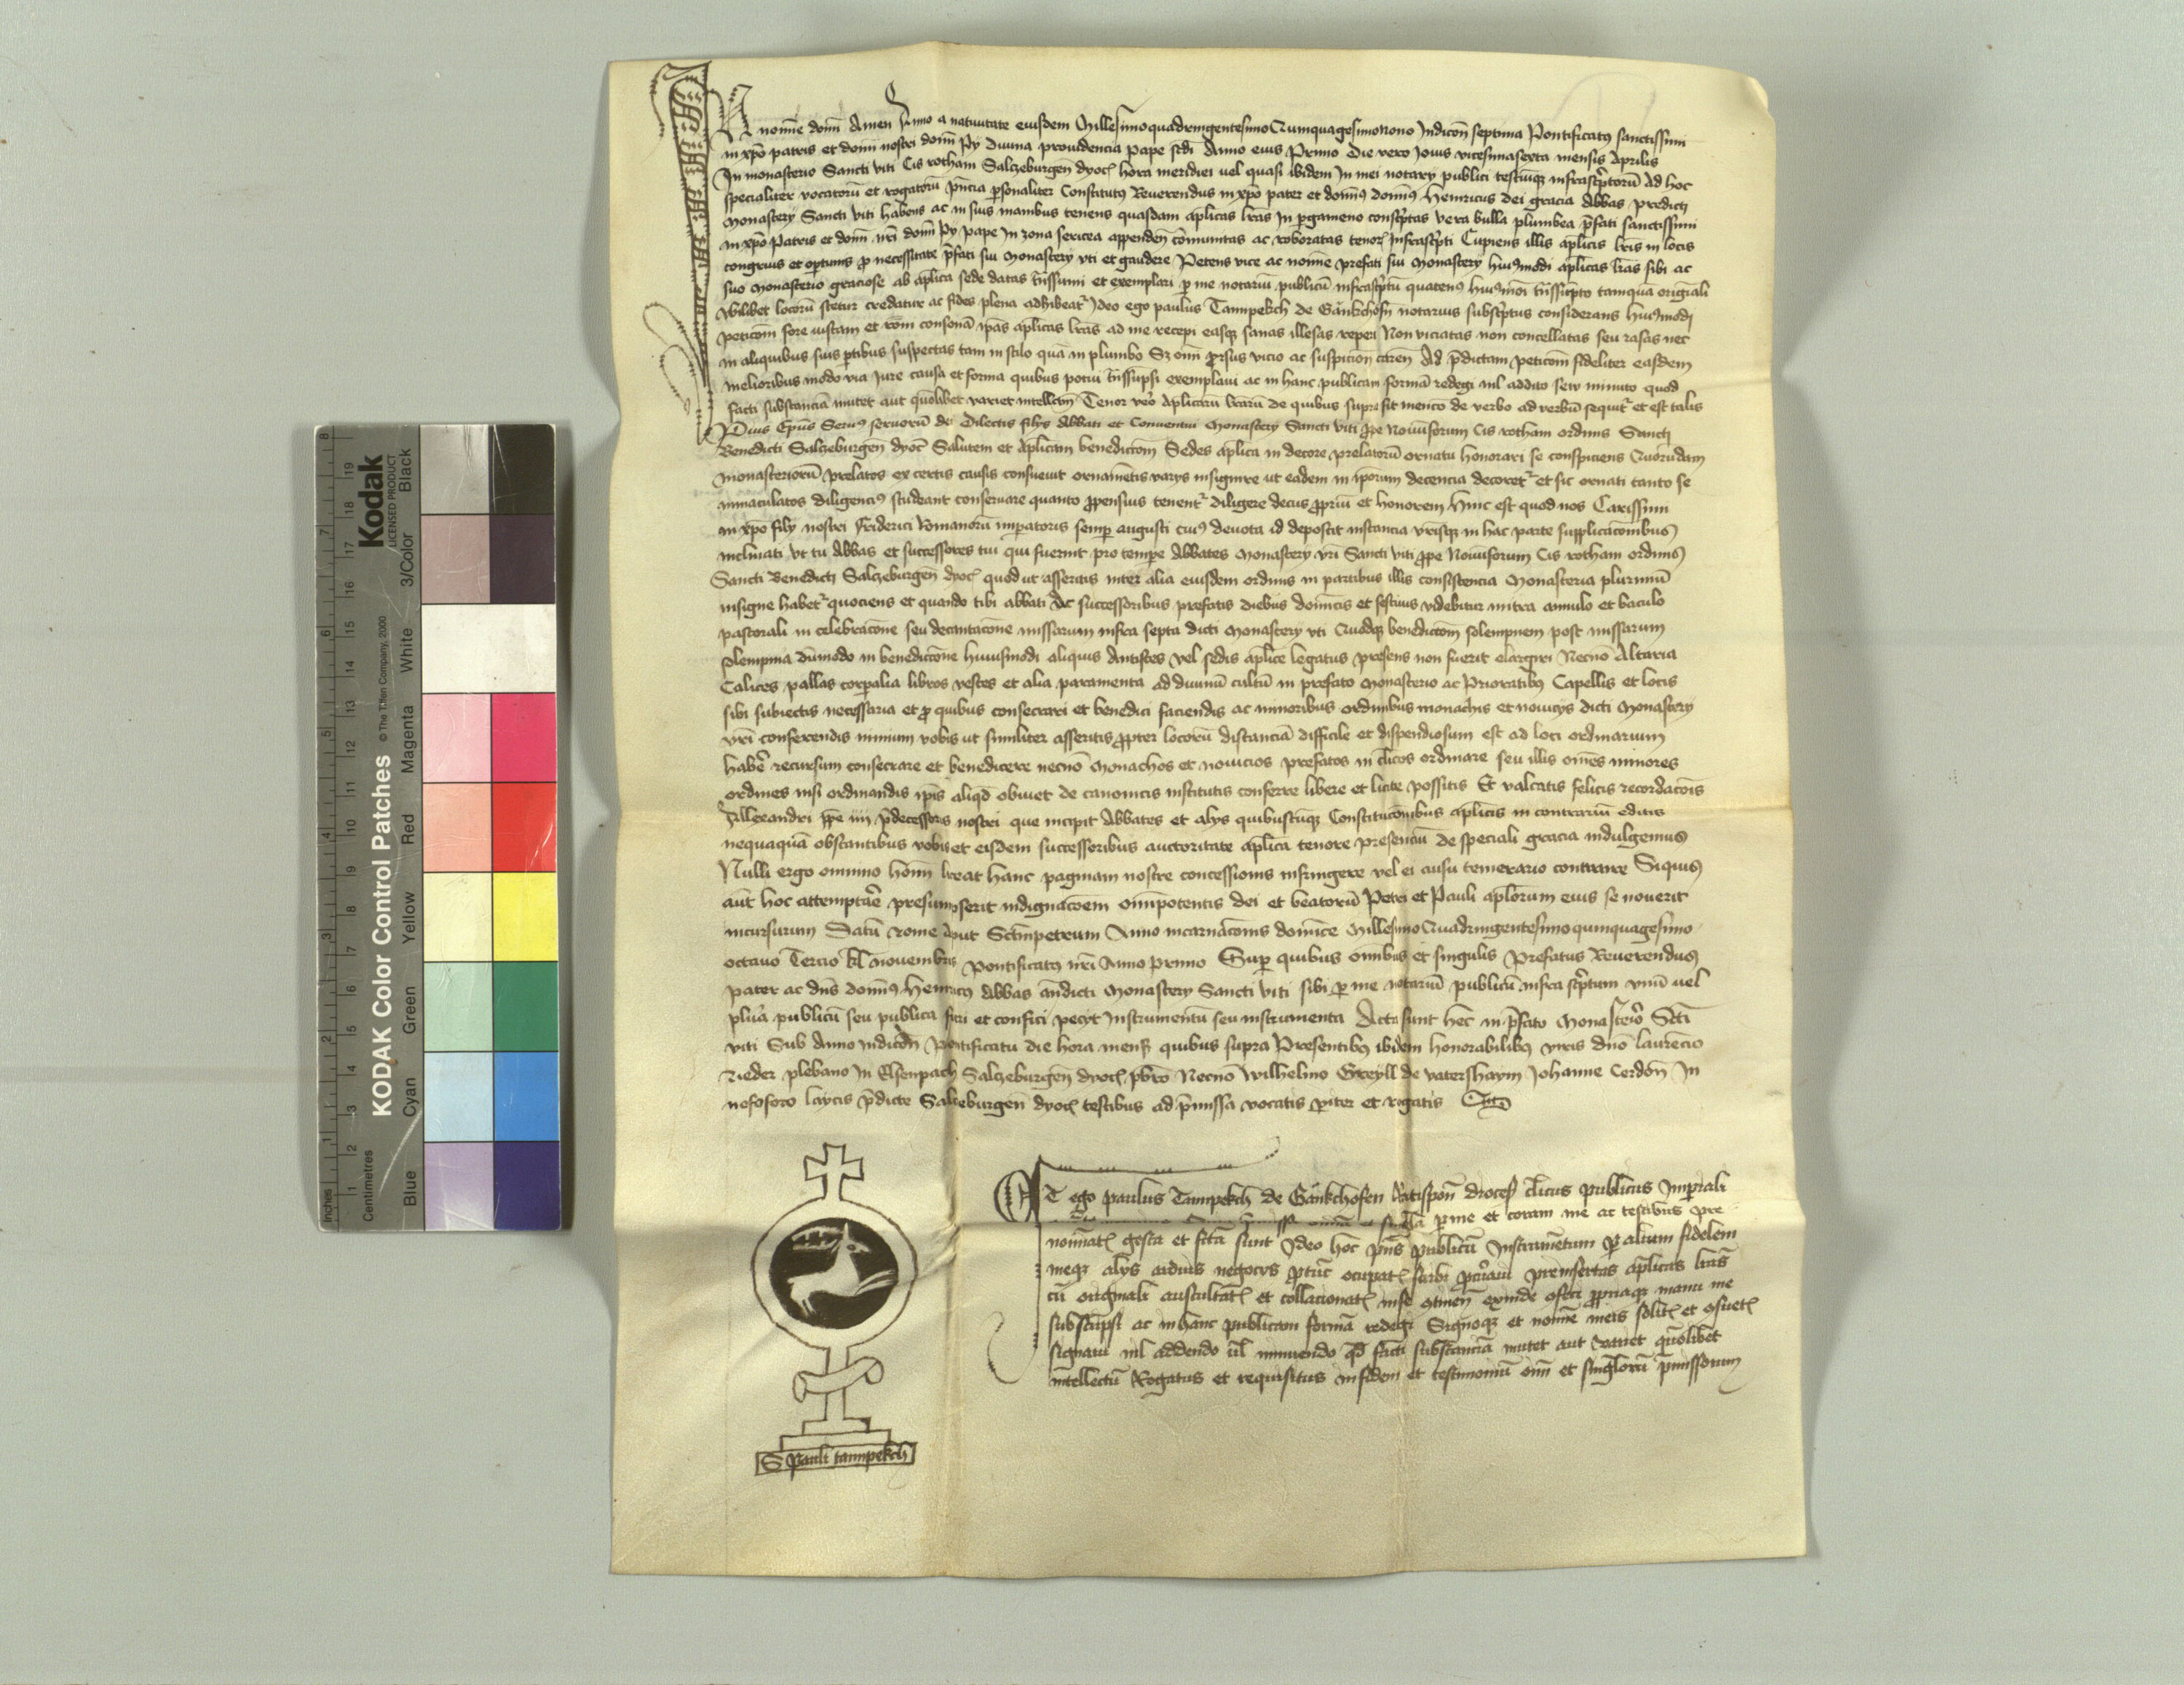 In nomie domi Amen Anno a natiuitate eiusdem Millesimoquadringentesimo Quinquagesimonono Indicon septima Pontificatus sanctissimi
in xpo patris et domi nostri domi Py diuina prouidencia pape scdi Anno eius Primo Die vero Jouis vicesimasexta mensis Aprilis
In monasterio Sancti viti Cis rotham Salczeburgen dyoc hora meridiei uel quasi ibidem In mei notary publici testiumq infrascriptoru Ad hoc
specialiter vocatoru et rogatoru pncia personaliter Constitutus Reuerendus in xpo pater et domnus domnus Henricus dei gracia Abbas predicti
Monastery Sancti viti habens ac in suis manibus tenens quasdam aplicas lras In pergameno conscriptas vera bulla plumbea pfati sanctissimi
in xpo Patris et domi nri domi Py pape In zona sericea appenden comunitas ac roboratas tenor Infrascripti Cupiens illis aplicis lris in locis
congruis et optunis pro necessitate pfati sui Monastery vti et gaudere Petens vice ac nomine prefati sui Monastery huiusmodi aplicas lras sibi ac
suo Monasterio graciose ab aplica sede datas trissumi et exemplari per me notariu publicu infrascriptu quatenus huiusmoi trissupto tamqua originali
vbilibet locoru stetur credatur ac fides plena adhibeatur Ideo ego paulus Tannpekch de Gankchofn notarius subscriptus considerans huiusmodi
peticom fore iustam et rom consona ipas aplicas lras ad me recepi easq sanas illesas reperi Non viciatas non concellatas seu rasas nec
in aliquibus suis ptibus suspectas tam in stilo qua in plumbo Sz omi prorsus vicio ac suspicion caren Ad pdictam peticom fideliter easdem
melioribus modo via Jure causa et forma quibus potui trissupsi exemplaui ac in hanc publicam forma redegi nil addito seu minuto quod
facti substancia mutet aut quolibet variet intellcm Tenor vero Aplicaru lraru de quibus supra fit mencio de verbo ad verbu sequitur et est talis
Pius Epus Seruus seruoru dei Dilectis filys Abbati et Conuentui Monastery Sancti viti ppe Nouuforum Cis rotham ordinis Sancti
Benedicti Salczeburgen dyoc Salutem et Aplicam benedictom Sedes aplica in decore prelatoru ornatu honorari se conspiciens Quorudam
monasterioru prelatos ex certis causis consueuit ornametis varys insignire ut eadem in ipsorum decencia decoretur et sic ornati tanto se
inmaculatos diligencius studeant conseruare quanto propensius tenentur diligere decus propriu et honorem Hinc est quod nos Carissimi
in xpo fily nostri Friderici Romanoru imperatoris semper augusti cuius deuota id deposcit instancia vrisq in hac parte supplicacombus
inclinati vt tu Abbas et successores tui qui fuerint pro tempore Abbates Monastery vri Sancti viti ppe Nouuforum Cis rotham ordinis
Sancti Benedicti Salczeburgen dyoc quod ut asseritis inter alia eiusdem ordinis in partibus illis consistencia Monasteria plurimu
insigne habetur quociens et quando tibi abbati Ac successoribus prefatis diebus domicis et festiuis videbitur mitra annulo et baculo
pastorali in celebracone seu decantacone missarum infra septa dicti Monastery vti Quodq benedictom solempnem post missarum
solempnia dummodo in benedictone huiusmodi aliquis Antistes vel sedis aplice legatus presens non fuerit elargiri Necno Altaria
Calices pallas corporalia libros vestes et alia paramenta ad diuinu cultu in prefato Monasterio ac Prioratibus Capellis et locis
sibi subiectis necessaria et pro quibus consecrari et benedici faciendis ac minoribus ordinibus monachis et nouicys dicti Monastery
vri conferendis nimium vobis ut similiter asseritis propter locoru distancia difficile et dispendiosum est ad loci ordinarium
habere recursum consecrare et benedicere necno Monachos et nouicios prefatos in clicos ordinare seu illis omes minores
ordines nisi ordinandis ipis aliqd obuiet de canonicis institutis conferre libere et licite possitis Et valeatis felicis recordacois
Allexandri ppe iiij pdecessoris nostri que incipit Abbates et alys quibuscuq Constitucombus aplicis in contrariu editis
nequaqua obstantibus vobis et eisdem successoribus auctoritate aplica tenore presenciu de speciali gracia indulgemus
Nulli ergo omnino homi liceat hanc paginam nostre concessionis infringere vel ei ausu temerario contraire Siquis
aut hoc attemptare presumpserit indignacoem omipotentis dei et beatoru Petri et Pauli aplorum eius se nouerit
incursurum Datu Rome aput Sctmpetrum Anno incarnacois domice Millesimo Quadringentesimo quinquagesimo
octauo Tercio kl Nouembris Pontificatus nri Anno primo Super quibus omibus et singulis Prefatus Reuerendus
pater ac dns domnus Henricus Abbas andicti Monastery Sancti viti sibi per me notariu publicu infra scriptum vnu uel
plura publicu seu publica fieri et confici pecyt Instrumentu seu instrumenta Acta sunt hec in pfato Monasterio Scti
viti Sub Anno indicon Pontificatu die hora mens quibus supra Presentibus ibidem honorabilibus viris dno laurecio
rieder plebano In Elsenpach Salczeburgen dyoc pbro Necno Wilhelmo Greyll de vatershaym Johanne Cerdon In
nofoforo laycis pdicte Salczeburgen dyoc testibus ad pmissa vocatis pariter et rogatis
ET ego paulus Tannpekch de Gankchofen Ratispon dioces clicus publicus Imperali
per me et coram me ac testibus pre
nominat gesta et fcta sunt Ideo hoc pns publicu Instrumetum per alium fidelem
meq alys arduis negocys ptuc ocupat scribi pcuraui preinsertas aplicas lras
cu originali auscultat et collacionat inse ptinen exinde ofeci propriaq manu me
subscripsi ac in hanc publicam forma redegi Signoq et nomie meis solit et osuet
signaui nil addendo ul minuendo qd facti substancia mutet aut variet quolibet
intellectu Rogatus et requisitus in fidem et testimoniu omi et singloru pmissorum
S pauli tannpekch
KODAK Color Control Patches
© The Tiffen Company, 2000
Kodak
LICENSED PRODUCT
Inches
Centimetres
Blue Cyan Green Yellow Red Magenta White 3/Color Black